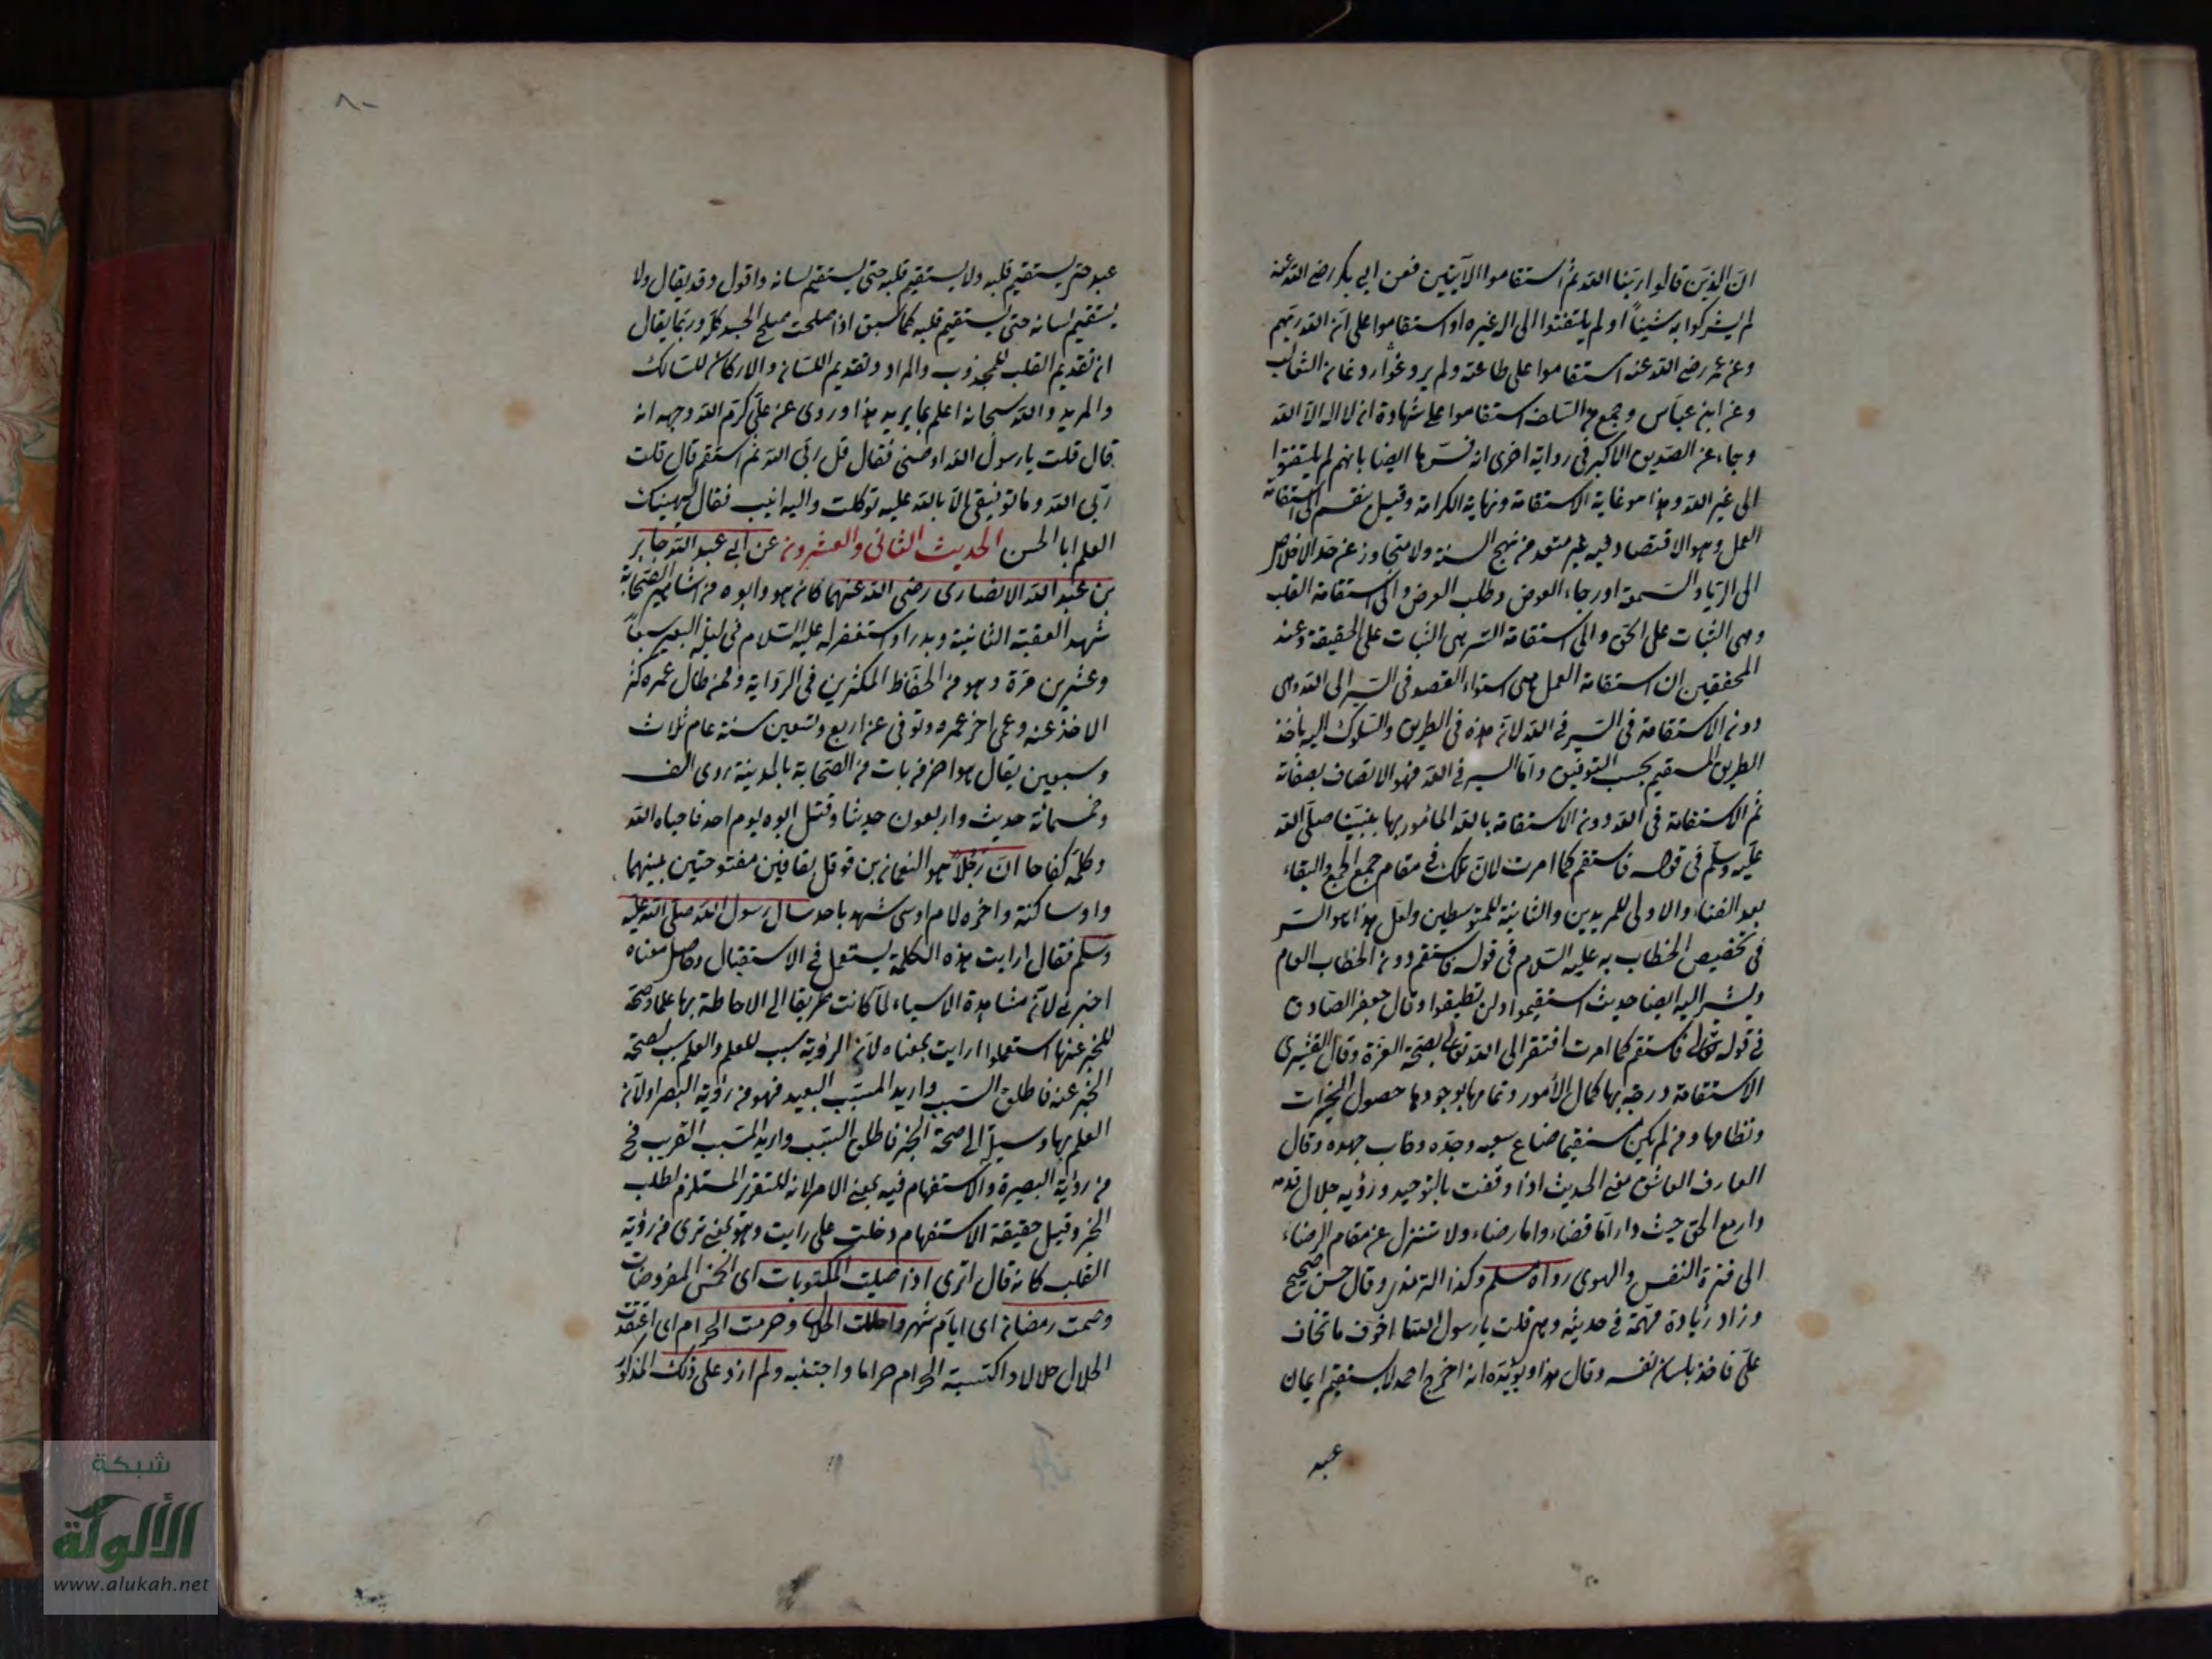 ان الذين قالوا ربنا الله ثم استقاموا الآيتين فعن ابي بكر رضي الله عنه
لم يشركوا به شيئاً او لم يلتفتوا الى اله غيره او استقاموا على ان الله ربهم
وعن عمر رضي الله عنه استقاموا على طاعته ولم يروغوا روغان الثعالب
وعن ابن عباس وجمع من السلف استقاموا على شهادة ان لا اله الا الله
وجاء عن الصديق الاكبر في رواية اخرى انه فسرها ايضا بانهم لم يلتفتوا
الى غير الله وهذا هو غاية الاستقامة ونهاية الكرامة وقيل ينقسم الى استقامة
العمل وهو الاقتصاد فيه غير متعد من نهج السنة ولا متجاوز عن حد الاخلاص
الى الرياء والسمعة او رجاء العوض وطلب الغرض والى استقامة القلب
وهي الثبات على الحق والى استقامة السر هي الثبات على الحقيقة وعند
المحققين ان استقامة العمل هي استواء القصد في السير الى الله وهي
دون الاستقامة في السير في الله لانه هذه في الطريق والسلوك اليه يأخذ
الطريق المستقيم بحسب التوفيق واما السير في الله فهو الاتصاف بصفاته
ثم الاستقامة في الله دون الاستقامة بالله المأمور بها نبينا صلى الله
عليه وسلم في قوله فاستقم كما امرت لان تلك في مقام جمع الجمع والبقاء
بعد الفناء والاولى للمريدين والثانية للمتوسطين ولعل هذا هو السر
في تخصيص الخطاب به عليه السلام في قوله فاستقم دون الخطاب العام
ويشير اليه ايضا حديث استقيموا ولن تطيقوا وقال جعفر الصادق
في قوله تعالى فاستقم كما امرت افتقر الى الله تعالى بصحة العزة وقال القشيري
الاستقامة درجة بها كمال الأمور وتمامها بوجودها حصول الخيرات
ونظامها ومن لم يكن مستقيما ضاع سعيه وجده وخاب جهده وقال
العارف العاشق معنى الحديث اذا وقفت بالتوحيد ورؤية جلال قدمه
وار مع الحق حيث دار اما قضاء واما رضاء ولا تنزل عن مقام الرضاء
الى فترة النفس والهوى رواه مسلم وكذا الترمذي وقال حسن صحيح
وزاد زيادة مهمة في حديثه وهي قلت يا رسول الله ما اخوف ما تخاف
علي فاخذ بلسان نفسه وقال هذا ويؤيده انه اخرج احمد لا يستقيم ايمان
عبد
٨٠
عبد حتى يستقيم قلبه ولا يستقيم قلبه حتى يستقيم لسانه واقول وقد يقال ولا
يستقيم لسانه حتى يستقيم قلبه كما سبق اذا صلحت صلح الجسد كله وربما يقال
ان تقديم القلب للمجذوب والمراد وتقديم اللسان والاركان للسالك
والمريد والله سبحانه اعلم بما يريد هذا وروى عن علي كرم الله وجهه انه
قال قلت يا رسول الله اوصني فقال قل ربي الله ثم استقم قال قلت
ربي الله وما توفيقي الا بالله عليه توكلت واليه انيب فقال ليهنيك
العلم ابا الحسن الحديث الثاني والعشرون عن ابي عبد الله جابر
بن عبد الله الانصاري رضي الله عنهما كان هو وابوه من مشاهير الصحابة
شهد العقبة الثانية وبدرا واستغفر له عليه السلام في ليلة البعير سبعاً
وعشرين مرة وهو من الحفاظ المكثرين في الرواية وممن طال عمره كثر
الاخذ عنه وعمي اخر عمره وتوفي عن اربع وتسعين سنة عام ثلاث
وسبعين يقال هو اخر من مات من الصحابة بالمدينة روى الف
وخمسمائة حديث واربعون حديثا وقتل ابوه يوم احد فاحياه الله
وكلمه كفاحا ان رجلا هو النعمان بن قوقل بقافين مفتوحتين بينهما
واو ساكنة واخره لام اوسي شهد باحد سال رسول الله صلى الله عليه
وسلم فقال ارايت هذه الكلمة يستعمل في الاستقبال وحاصل معناه
اخبرني لانه مشاهدة الاشياء لما كانت طريقا الى الاحاطة بها علما وصحة
للخبر عنها استعملوا ارايت بمعناه لانه الرؤية سبب للعلم والعلم سبب لصحة
الخبر عنه فاطلق السبب واريد المسبب البعيد فهو من رؤية البصر او لانه
العلم بها وسيلة الى صحة الخبر فاطلق السبب واريد المسبب القريب فح
من رؤية البصيرة والاستفهام فيه بمعنى الامر لانه للتقرير المستلزم لطلب
الخبر وقيل حقيقة الاستفهام دخلت على رايت وهو بمعنى ترى من رؤية
القلب كانه قال اترى اذا صليت المكتوبات اى الخمس المفروضات
وصمت رمضان اى ايام شهره واحللت الحلال وحرمت الحرام اى اعتقدت
الحلال حلالا واكتسبته الحرام حراما واجتنبه ولم ازد على ذلك المذكور
شبكة
الألوكة
www.alukah.net